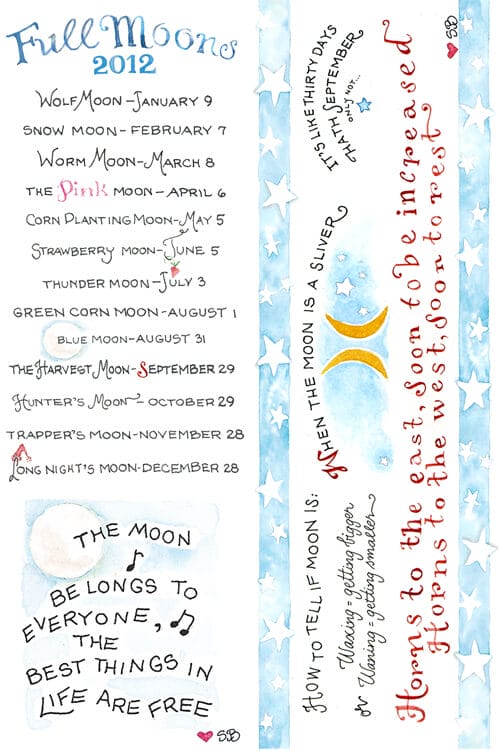 Full Moons
2012
Wolf Moon - January 9
Snow Moon - February 7
Worm Moon - March 8
The Pink Moon - April 6
Corn Planting Moon - May 5
Strawberry Moon - June 5
Thunder Moon - July 3
Green Corn Moon - August 1
Blue Moon - August 31
The Harvest Moon - September 29
Hunter's Moon - October 29
Trapper's Moon - November 28
Long Night's Moon - December 28
The Moon
Belongs to
Everyone,
The
Best Things in
Life Are Free
SB
How to tell if moon is:
Waxing = getting bigger
or Waning = getting smaller
When the moon is a sliver
It's like thirty days
hath September
only not...
Horns to the east, Soon to be increased
Horns to the west, Soon to rest
SB